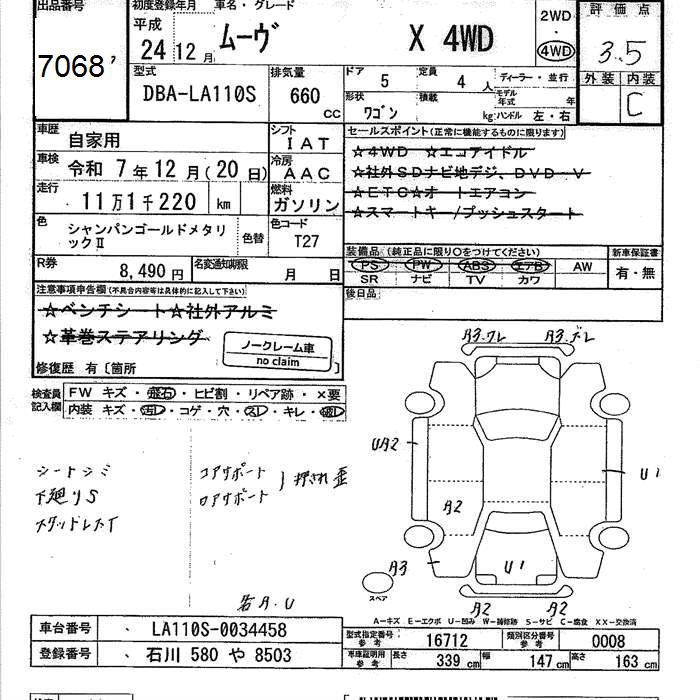 出品番号 初度登録年月 車名・グレード 評価点
7068
平成
24年12月 ムーヴ X 4WD 2WD・4WD 3.5
型式 排気量 ドア 定員 ディーラー・並行 外装 内装
DBA-LA110S 660 CC 5 4人 C
形状 積載 モデル年式 年
ワゴン kg ハンドル 左・右
車歴 自家用 シフト IAT セールスポイント(正常に機能するものに限ります)
☆4WD ☆エコアイドル
車検 令和 7年12月(20日) 冷房 AAC ☆社外SDナビ地デジ、DVD-V
☆ETC☆オートエアコン
走行 11万1千220 km 燃料 ガソリン ☆スマートキー/プッシュスタート
色 シャンパンゴールドメタリックⅡ 色替 色コード T27
装備品(純正品に限り○をつけてください) 新車保証書
PS PW ABS エアB AW 有・無
SR ナビ TV カワ
R券 8,490円 名変通知期限 月 日
後日品
注意事項申告欄(不具合内容等は具体的に記入して下さい)
☆ベンチシート☆社外アルミ
☆革巻ステアリング
ノークレーム車
no claim
修復歴 有〔箇所 〕
検査員記入欄 FW キズ・飛石・ヒビ割・リペア跡・×要
内装 キズ・汚レ・コゲ・穴・スレ・キレ・破レ
シートシミ
下廻りS
スタッドレスT
コアサポート
ロアサポート 押され歪
A3.ワレ A3.ズレ
UA2
U1
A2
A3
U1
スペア
A2 A2
A-キズ E-エクボ U-凹み W-補修跡 S-サビ C-腐食 XX-交換済
車台番号 LA110S-0034458
型式指定番号 参考 16712 類別区分番号 参考 0008
登録番号 石川 580 や 8503
車庫証明用 参考 長さ 339 cm 幅 147 cm 高さ 163 cm